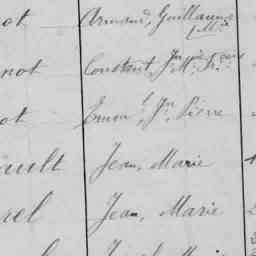 ot Armand, Guillaume
Mie
not Constant, Jn Mie Frçois
ot Emml, Jn, Pierre
ault Jean, Marie
rel Jean, Marie